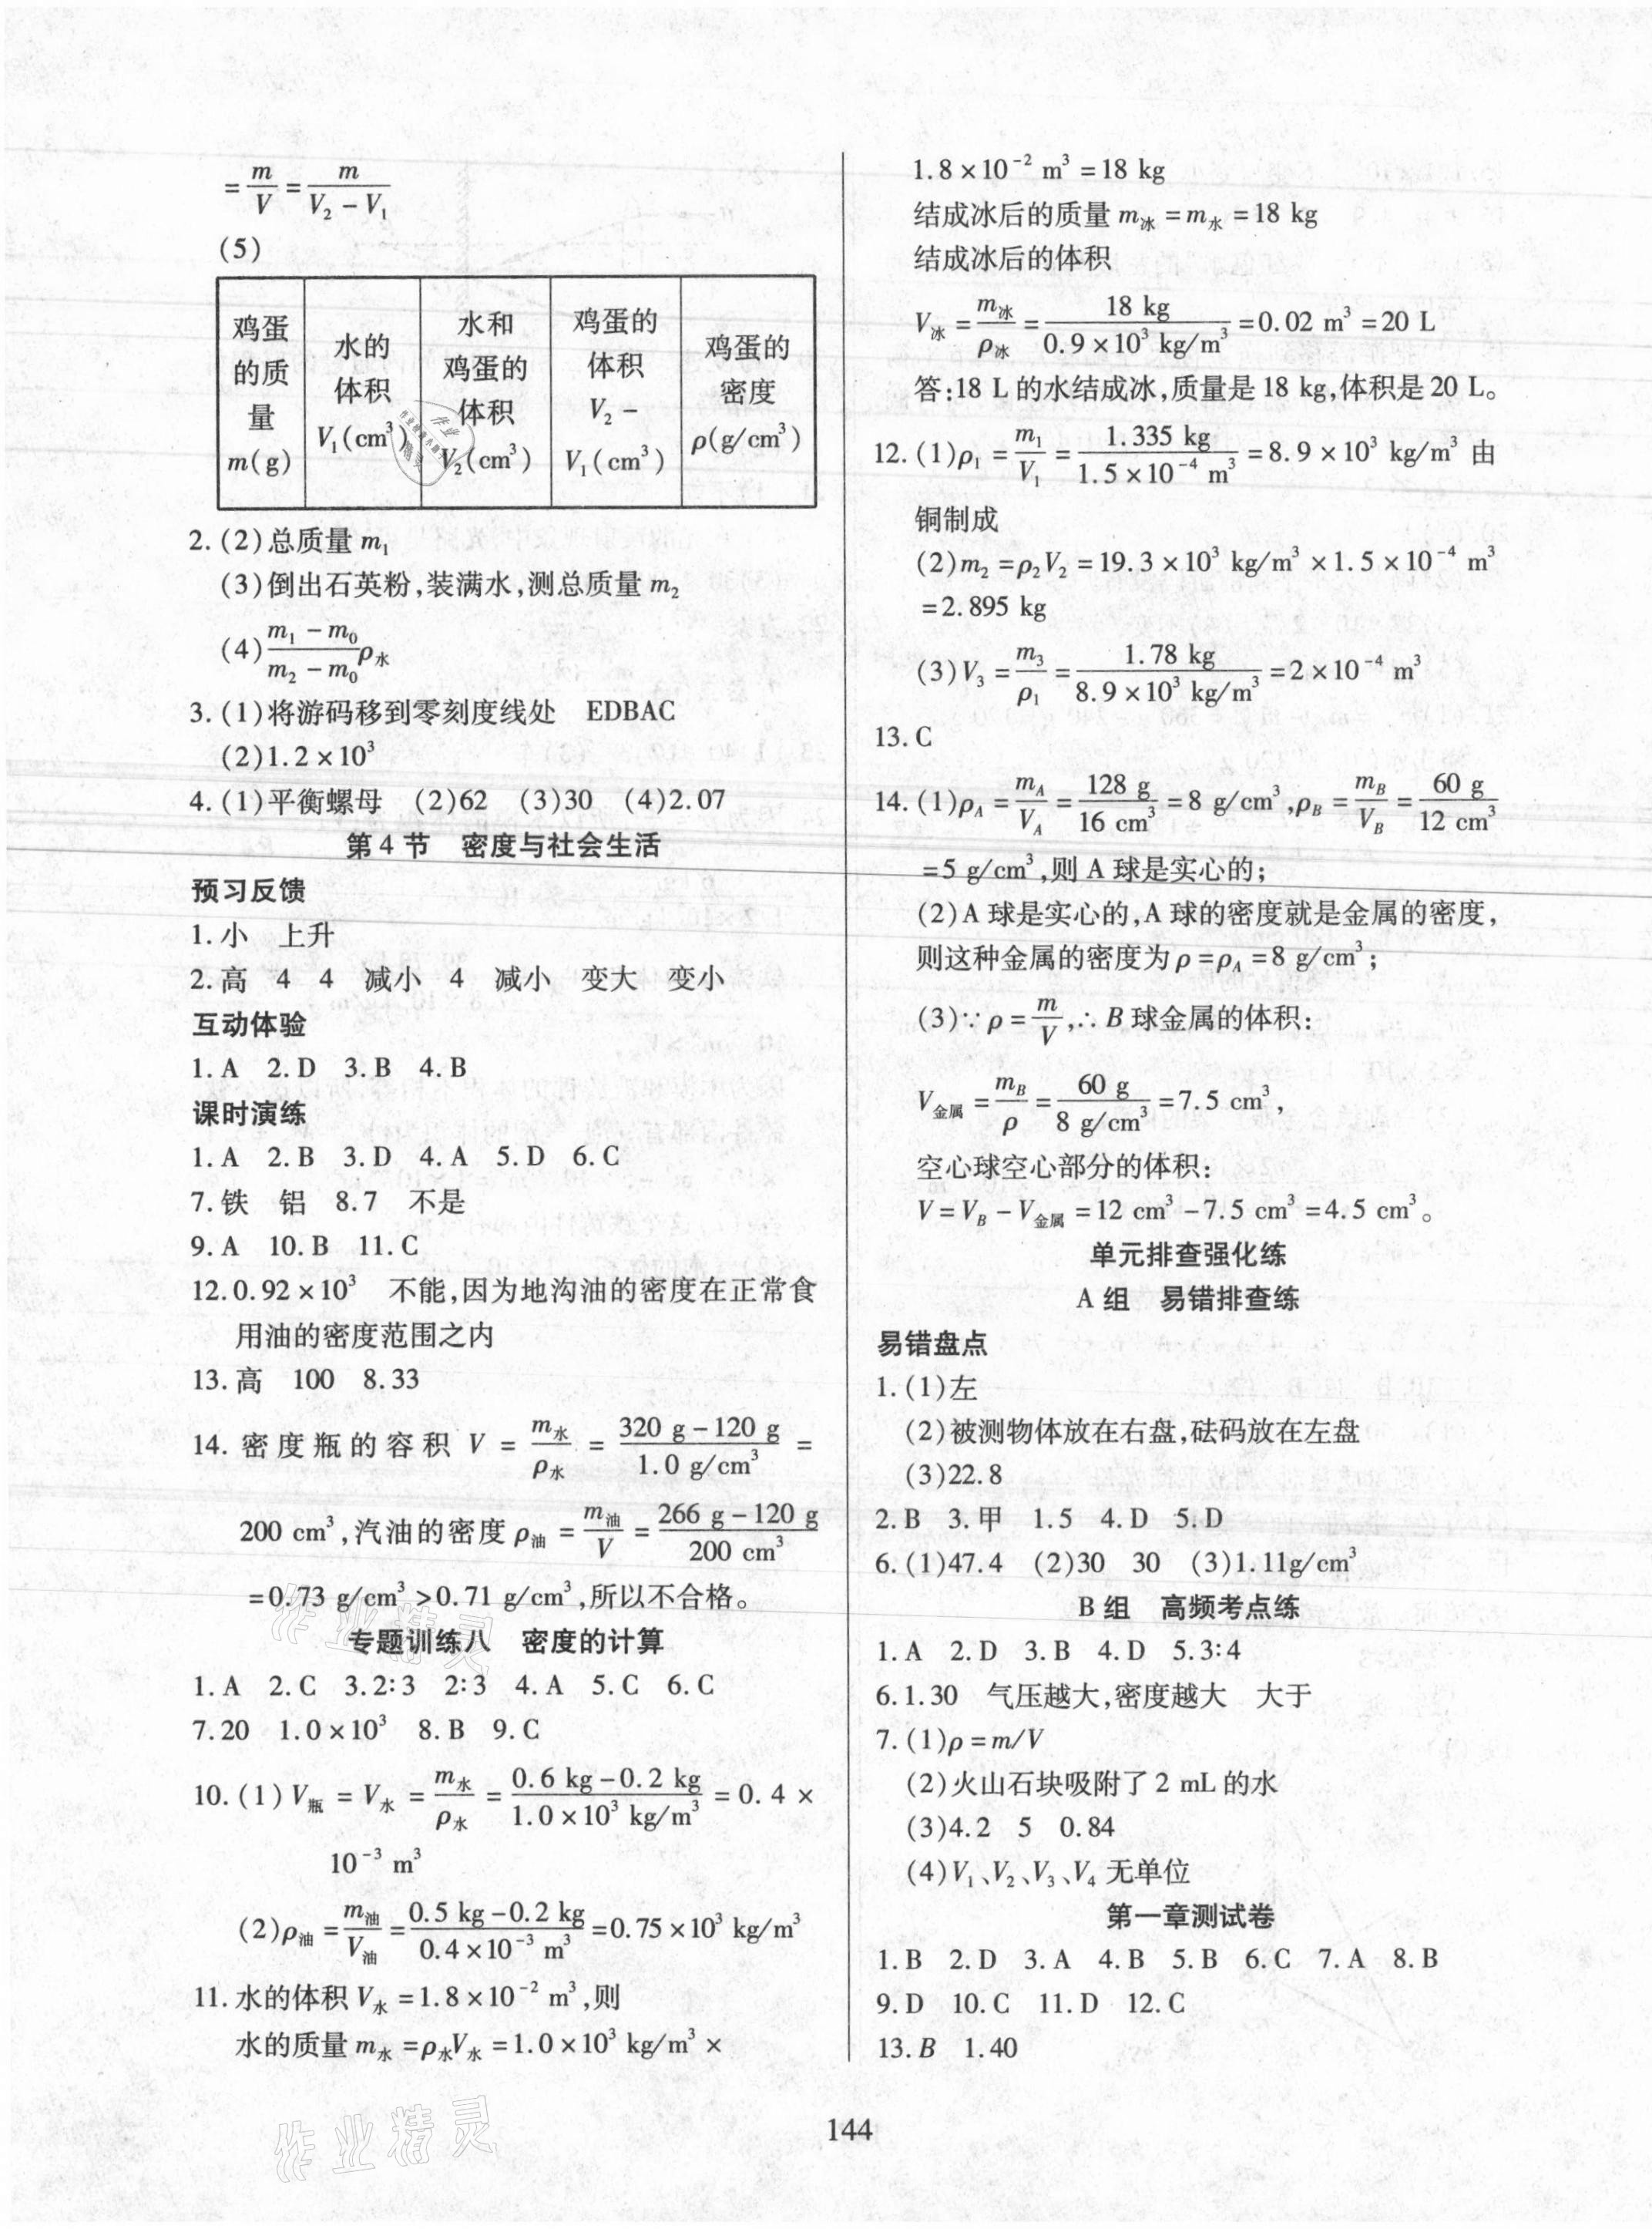 = m/V = m/(V₂ - V₁)
(5)
鸡蛋的质量 m(g) 水的体积 V₁(cm³) 水和鸡蛋的体积 V₂(cm³) 鸡蛋的体积 V₂ - V₁(cm³) 鸡蛋的密度 ρ(g/cm³)
2.(2)总质量 m₁
(3)倒出石英粉,装满水,测总质量 m₂
(4) (m₁ - m₀)/(m₂ - m₀) ρ水
3.(1)将游码移到零刻度线处 EDBAC
(2)1.2×10³
4.(1)平衡螺母 (2)62 (3)30 (4)2.07
第4节 密度与社会生活
预习反馈
1.小 上升
2.高 4 4 减小 4 减小 变大 变小
互动体验
1.A 2.D 3.B 4.B
课时演练
1.A 2.B 3.D 4.A 5.D 6.C
7.铁 铝 8.7 不是
9.A 10.B 11.C
12.0.92×10³ 不能,因为地沟油的密度在正常食
用油的密度范围之内
13.高 100 8.33
14.密度瓶的容积 V = m水/ρ水 = (320 g - 120 g)/(1.0 g/cm³) =
200 cm³,汽油的密度 ρ油 = m油/V = (266 g - 120 g)/(200 cm³)
=0.73 g/cm³>0.71 g/cm³,所以不合格。
专题训练八 密度的计算
1.A 2.C 3.2∶3 2∶3 4.A 5.C 6.C
7.20 1.0×10³ 8.B 9.C
10.(1)V瓶 = V水 = m水/ρ水 = (0.6 kg - 0.2 kg)/(1.0×10³ kg/m³) = 0.4 ×
10⁻³ m³
(2)ρ油 = m油/V油 = (0.5 kg - 0.2 kg)/(0.4×10⁻³ m³) = 0.75×10³ kg/m³
11.水的体积 V水 = 1.8×10⁻² m³,则
水的质量 m水 = ρ水V水 = 1.0×10³ kg/m³ ×
1.8×10⁻² m³ = 18 kg
结成冰后的质量 m冰 = m水 = 18 kg
结成冰后的体积
V冰 = m冰/ρ冰 = 18 kg/(0.9×10³ kg/m³) = 0.02 m³ = 20 L
答:18 L的水结成冰,质量是18 kg,体积是20 L。
12.(1)ρ₁ = m₁/V₁ = 1.335 kg/(1.5×10⁻⁴ m³) = 8.9×10³ kg/m³ 由
铜制成
(2)m₂ = ρ₂V₂ = 19.3×10³ kg/m³ ×1.5×10⁻⁴ m³
=2.895 kg
(3)V₃ = m₃/ρ₁ = 1.78 kg/(8.9×10³ kg/m³) = 2×10⁻⁴ m³
13.C
14.(1)ρA = mA/VA = 128 g/16 cm³ = 8 g/cm³,ρB = mB/VB = 60 g/12 cm³
=5 g/cm³,则 A 球是实心的;
(2)A 球是实心的,A 球的密度就是金属的密度,
则这种金属的密度为 ρ = ρA = 8 g/cm³;
(3)∵ρ = m/V,∴B球金属的体积:
V金属 = mB/ρ = 60 g/(8 g/cm³) = 7.5 cm³,
空心球空心部分的体积:
V = VB - V金属 = 12 cm³ - 7.5 cm³ = 4.5 cm³。
单元排查强化练
A组 易错排查练
易错盘点
1.(1)左
(2)被测物体放在右盘,砝码放在左盘
(3)22.8
2.B 3.甲 1.5 4.D 5.D
6.(1)47.4 (2)30 30 (3)1.11g/cm³
B组 高频考点练
1.A 2.D 3.B 4.D 5.3∶4
6.1.30 气压越大,密度越大 大于
7.(1)ρ = m/V
(2)火山石块吸附了2 mL的水
(3)4.2 5 0.84
(4)V₁、V₂、V₃、V₄ 无单位
第一章测试卷
1.B 2.D 3.A 4.B 5.B 6.C 7.A 8.B
9.D 10.C 11.D 12.C
13.B 1.40
144
作业精灵
作业精灵